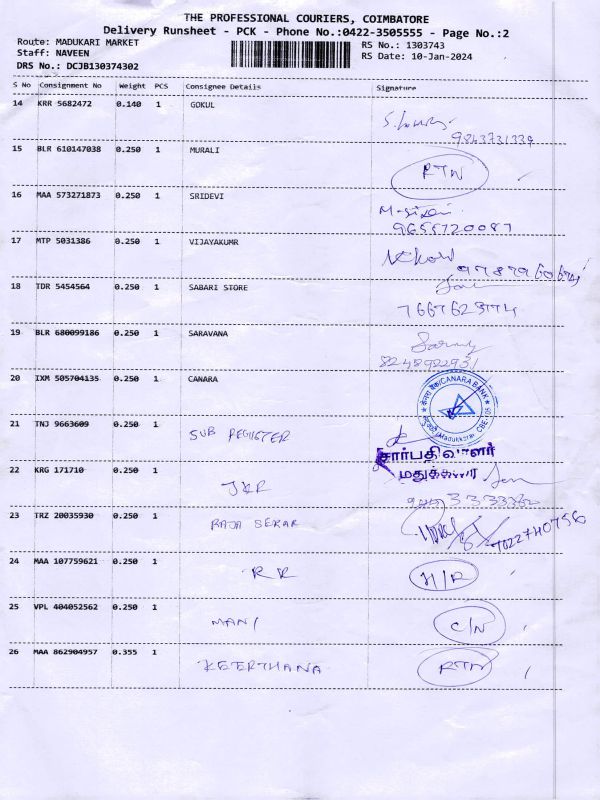 THE PROFESSIONAL COURIERS, COIMBATORE
Delivery Runsheet - PCK - Phone No.:0422-3505555 - Page No.:2
Route: MADUKARI MARKET RS No.: 1303743
Staff: NAVEEN RS Date: 10-Jan-2024
DRS No.: DCJB130374302
S No Consignment No Weight PCS Consignee Details Signature
14 KRR 5682472 0.140 1 GOKUL
9843731339
15 BLR 610147038 0.250 1 MURALI RTN
16 MAA 573271873 0.250 1 SRIDEVI
9655720087
17 MTP 5031386 0.250 1 VIJAYAKUMR
18 TDR 5454564 0.250 1 SABARI STORE
19 BLR 680099186 0.250 1 SARAVANA
8248922931
20 IXM 505704135 0.250 1 CANARA CANARA BANK
21 TNJ 9663609 0.250 1 SUB REGISTER
சார்பதிவாளர்
மதுக்கரை
22 KRG 171710 0.250 1 JKR
23 TRZ 20035930 0.250 1 RAJA SEKAR
24 MAA 107759621 0.250 1 RR H/R
25 VPL 404052562 0.250 1 MANI C/N
26 MAA 862904957 0.355 1 KEERTHANA RTN